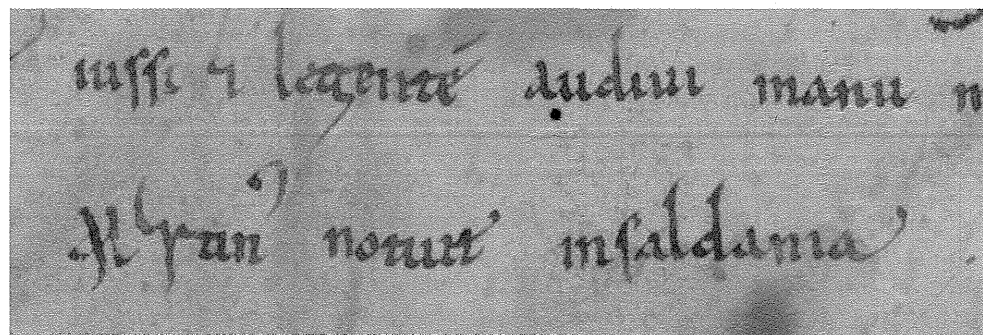 iussi ⁊ legentē audiui manu
notuit insaldania